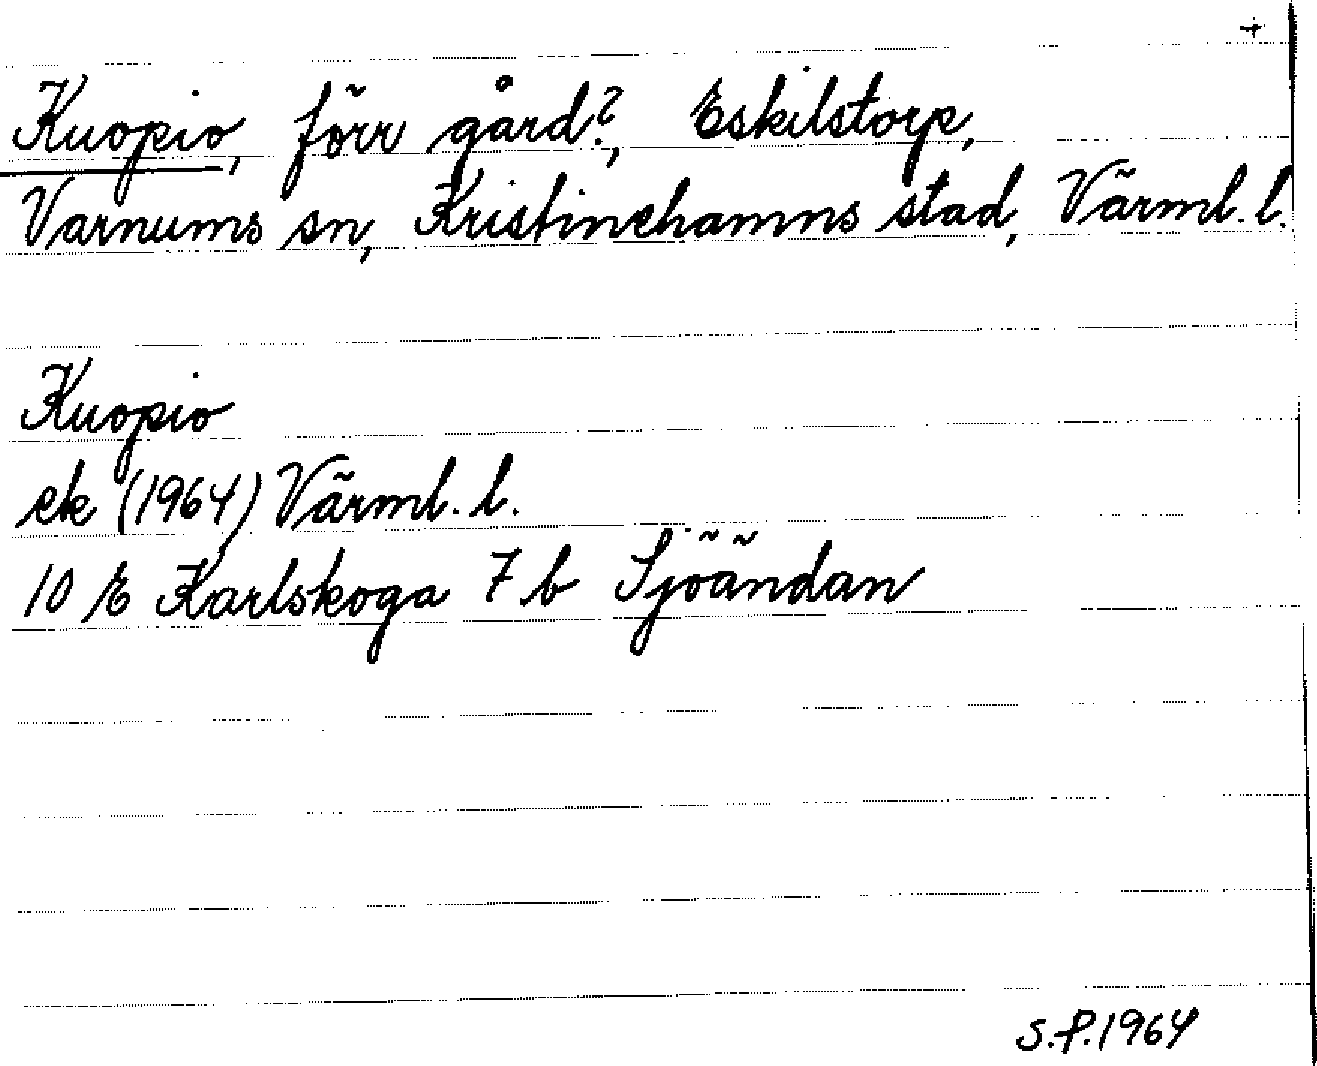 +
Kuopio, förr gård?, Eskilstorp,
Varnums sn, Kristinehamns stad, Värml. l.
Kuopio
ek (1964) Värml. l.
10 E Karlskoga 7 b Sjöändan
S.P. 1964